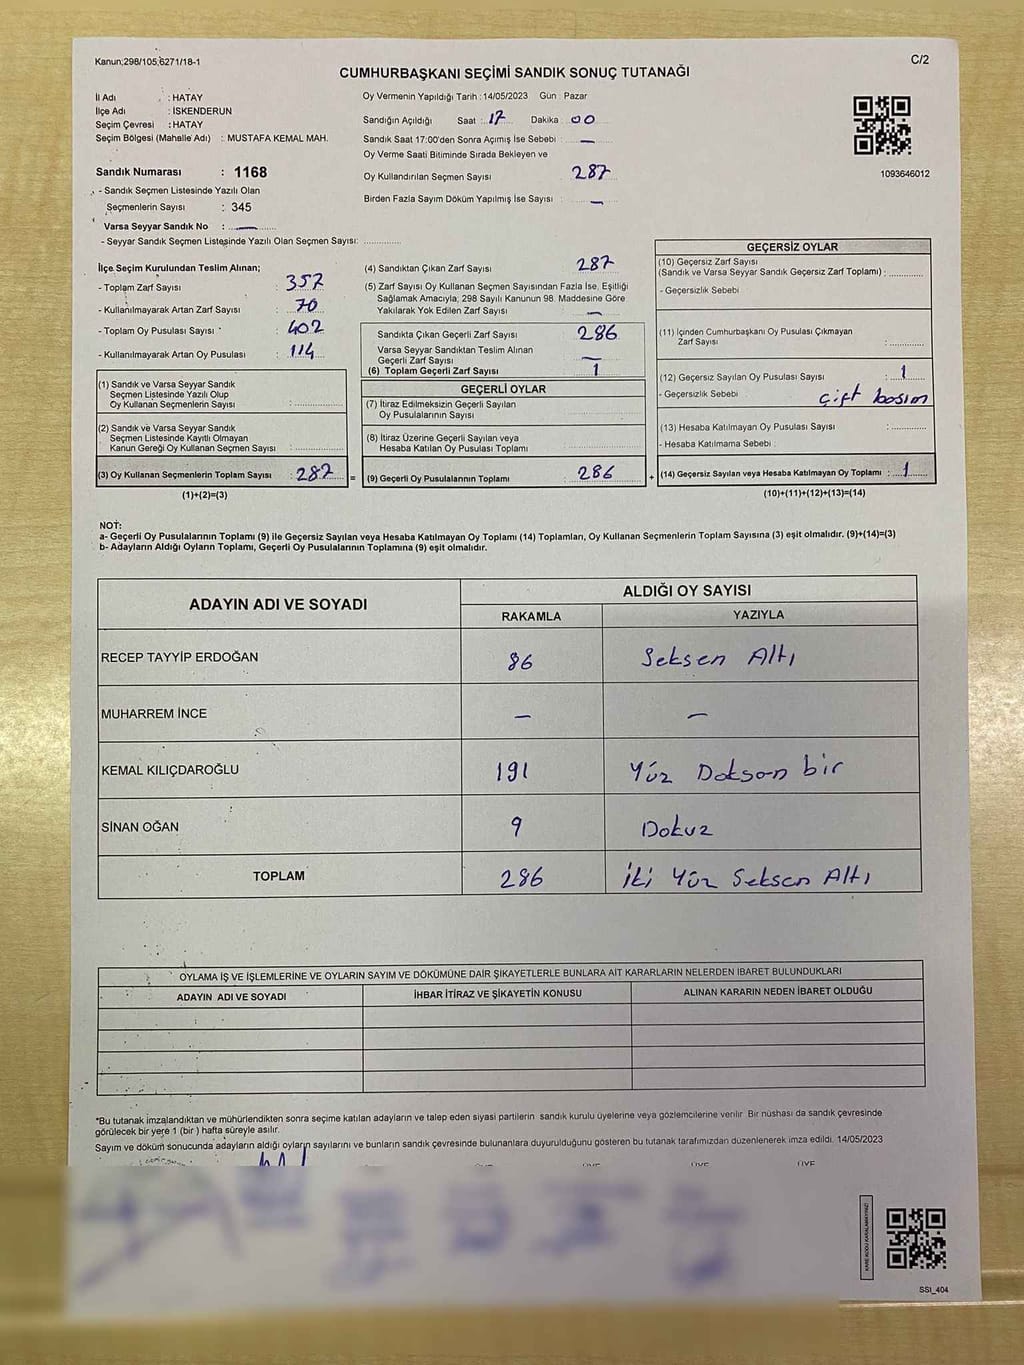 Kanun;298/105,6271/18-1
C/2
CUMHURBAŞKANI SEÇİMİ SANDIK SONUÇ TUTANAĞI
İl Adı : HATAY
İlçe Adı : İSKENDERUN
Seçim Çevresi : HATAY
Seçim Bölgesi (Mahalle Adı) : MUSTAFA KEMAL MAH.
Sandık Numarası : 1168
- Sandık Seçmen Listesinde Yazılı Olan
Seçmenlerin Sayısı : 345
Varsa Seyyar Sandık No : —
- Seyyar Sandık Seçmen Listesinde Yazılı Olan Seçmen Sayısı: ............
Oy Vermenin Yapıldığı Tarih : 14/05/2023 Gün : Pazar
Sandığın Açıldığı Saat : 17 Dakika : 00
Sandık Saat 17:00'den Sonra Açımış İse Sebebi : —
Oy Verme Saati Bitiminde Sırada Bekleyen ve
Oy Kullandırılan Seçmen Sayısı 287
Birden Fazla Sayım Döküm Yapılmış İse Sayısı : —
1093646012
İlçe Seçim Kurulundan Teslim Alınan;
- Toplam Zarf Sayısı : 357
- Kullanılmayarak Artan Zarf Sayısı : 70
- Toplam Oy Pusulası Sayısı : 402
- Kullanılmayarak Artan Oy Pusulası : 114
(1) Sandık ve Varsa Seyyar Sandık
Seçmen Listesinde Yazılı Olup
Oy Kullanan Seçmenlerin Sayısı : ............
(2) Sandık ve Varsa Seyyar Sandık
Seçmen Listesinde Kayıtlı Olmayan
Kanun Gereği Oy Kullanan Seçmen Sayısı : ............
(3) Oy Kullanan Seçmenlerin Toplam Sayısı : 287 =
(1)+(2)=(3)
(4) Sandıktan Çıkan Zarf Sayısı 287
(5) Zarf Sayısı Oy Kullanan Seçmen Sayısından Fazla İse, Eşitliği
Sağlamak Amacıyla; 298 Sayılı Kanunun 98. Maddesine Göre
Yakılarak Yok Edilen Zarf Sayısı : —
Sandıkta Çıkan Geçerli Zarf Sayısı : 286
Varsa Seyyar Sandıktan Teslim Alınan
Geçerli Zarf Sayısı : —
(6) Toplam Geçerli Zarf Sayısı : 1
GEÇERLİ OYLAR
(7) İtiraz Edilmeksizin Geçerli Sayılan
Oy Pusulalarının Sayısı :
(8) İtiraz Üzerine Geçerli Sayılan veya
Hesaba Katılan Oy Pusulası Toplamı :
(9) Geçerli Oy Pusulalarının Toplamı : 286 +
GEÇERSİZ OYLAR
(10) Geçersiz Zarf Sayısı
(Sandık ve Varsa Seyyar Sandık Geçersiz Zarf Toplamı) : ............
- Geçersizlik Sebebi
(11) İçinden Cumhurbaşkanı Oy Pusulası Çıkmayan
Zarf Sayısı : ............
(12) Geçersiz Sayılan Oy Pusulası Sayısı : 1
- Geçersizlik Sebebi : çift basım
(13) Hesaba Katılmayan Oy Pusulası Sayısı : ............
- Hesaba Katılmama Sebebi :
(14) Geçersiz Sayılan veya Hesaba Katılmayan Oy Toplamı : 1
(10)+(11)+(12)+(13)=(14)
NOT:
a- Geçerli Oy Pusulalarının Toplamı (9) ile Geçersiz Sayılan veya Hesaba Katılmayan Oy Toplamı (14) Toplamları, Oy Kullanan Seçmenlerin Toplam Sayısına (3) eşit olmalıdır. (9)+(14)=(3)
b- Adayların Aldığı Oyların Toplamı, Geçerli Oy Pusulalarının Toplamına (9) eşit olmalıdır.
ADAYIN ADI VE SOYADI
ALDIĞI OY SAYISI
RAKAMLA YAZIYLA
RECEP TAYYİP ERDOĞAN 86 Seksen Altı
MUHARREM İNCE — —
KEMAL KILIÇDAROĞLU 191 Yüz Doksan bir
SİNAN OĞAN 9 Dokuz
TOPLAM 286 İki Yüz Seksen Altı
OYLAMA İŞ VE İŞLEMLERİNE VE OYLARIN SAYIM VE DÖKÜMÜNE DAİR ŞİKAYETLERLE BUNLARA AİT KARARLARIN NELERDEN İBARET BULUNDUKLARI
ADAYIN ADI VE SOYADI İHBAR İTİRAZ VE ŞİKAYETİN KONUSU ALINAN KARARIN NEDEN İBARET OLDUĞU
*Bu tutanak imzalandıktan ve mühürlendikten sonra seçime katılan adayların ve talep eden siyasi partilerin sandık kurulu üyelerine veya gözlemcilerine verilir Bir nüshası da sandık çevresinde
görülecek bir yere 1 (bir) hafta süreyle asılır.
Sayım ve döküm sonucunda adayların aldığı oyların sayılarını ve bunların sandık çevresinde bulunanlara duyurulduğunu gösteren bu tutanak tarafımızdan düzenlenerek imza edildi. 14/05/2023
ÜYE ÜYE ÜYE
KARE KODU KARALAMAYINIZ!
SSI_404